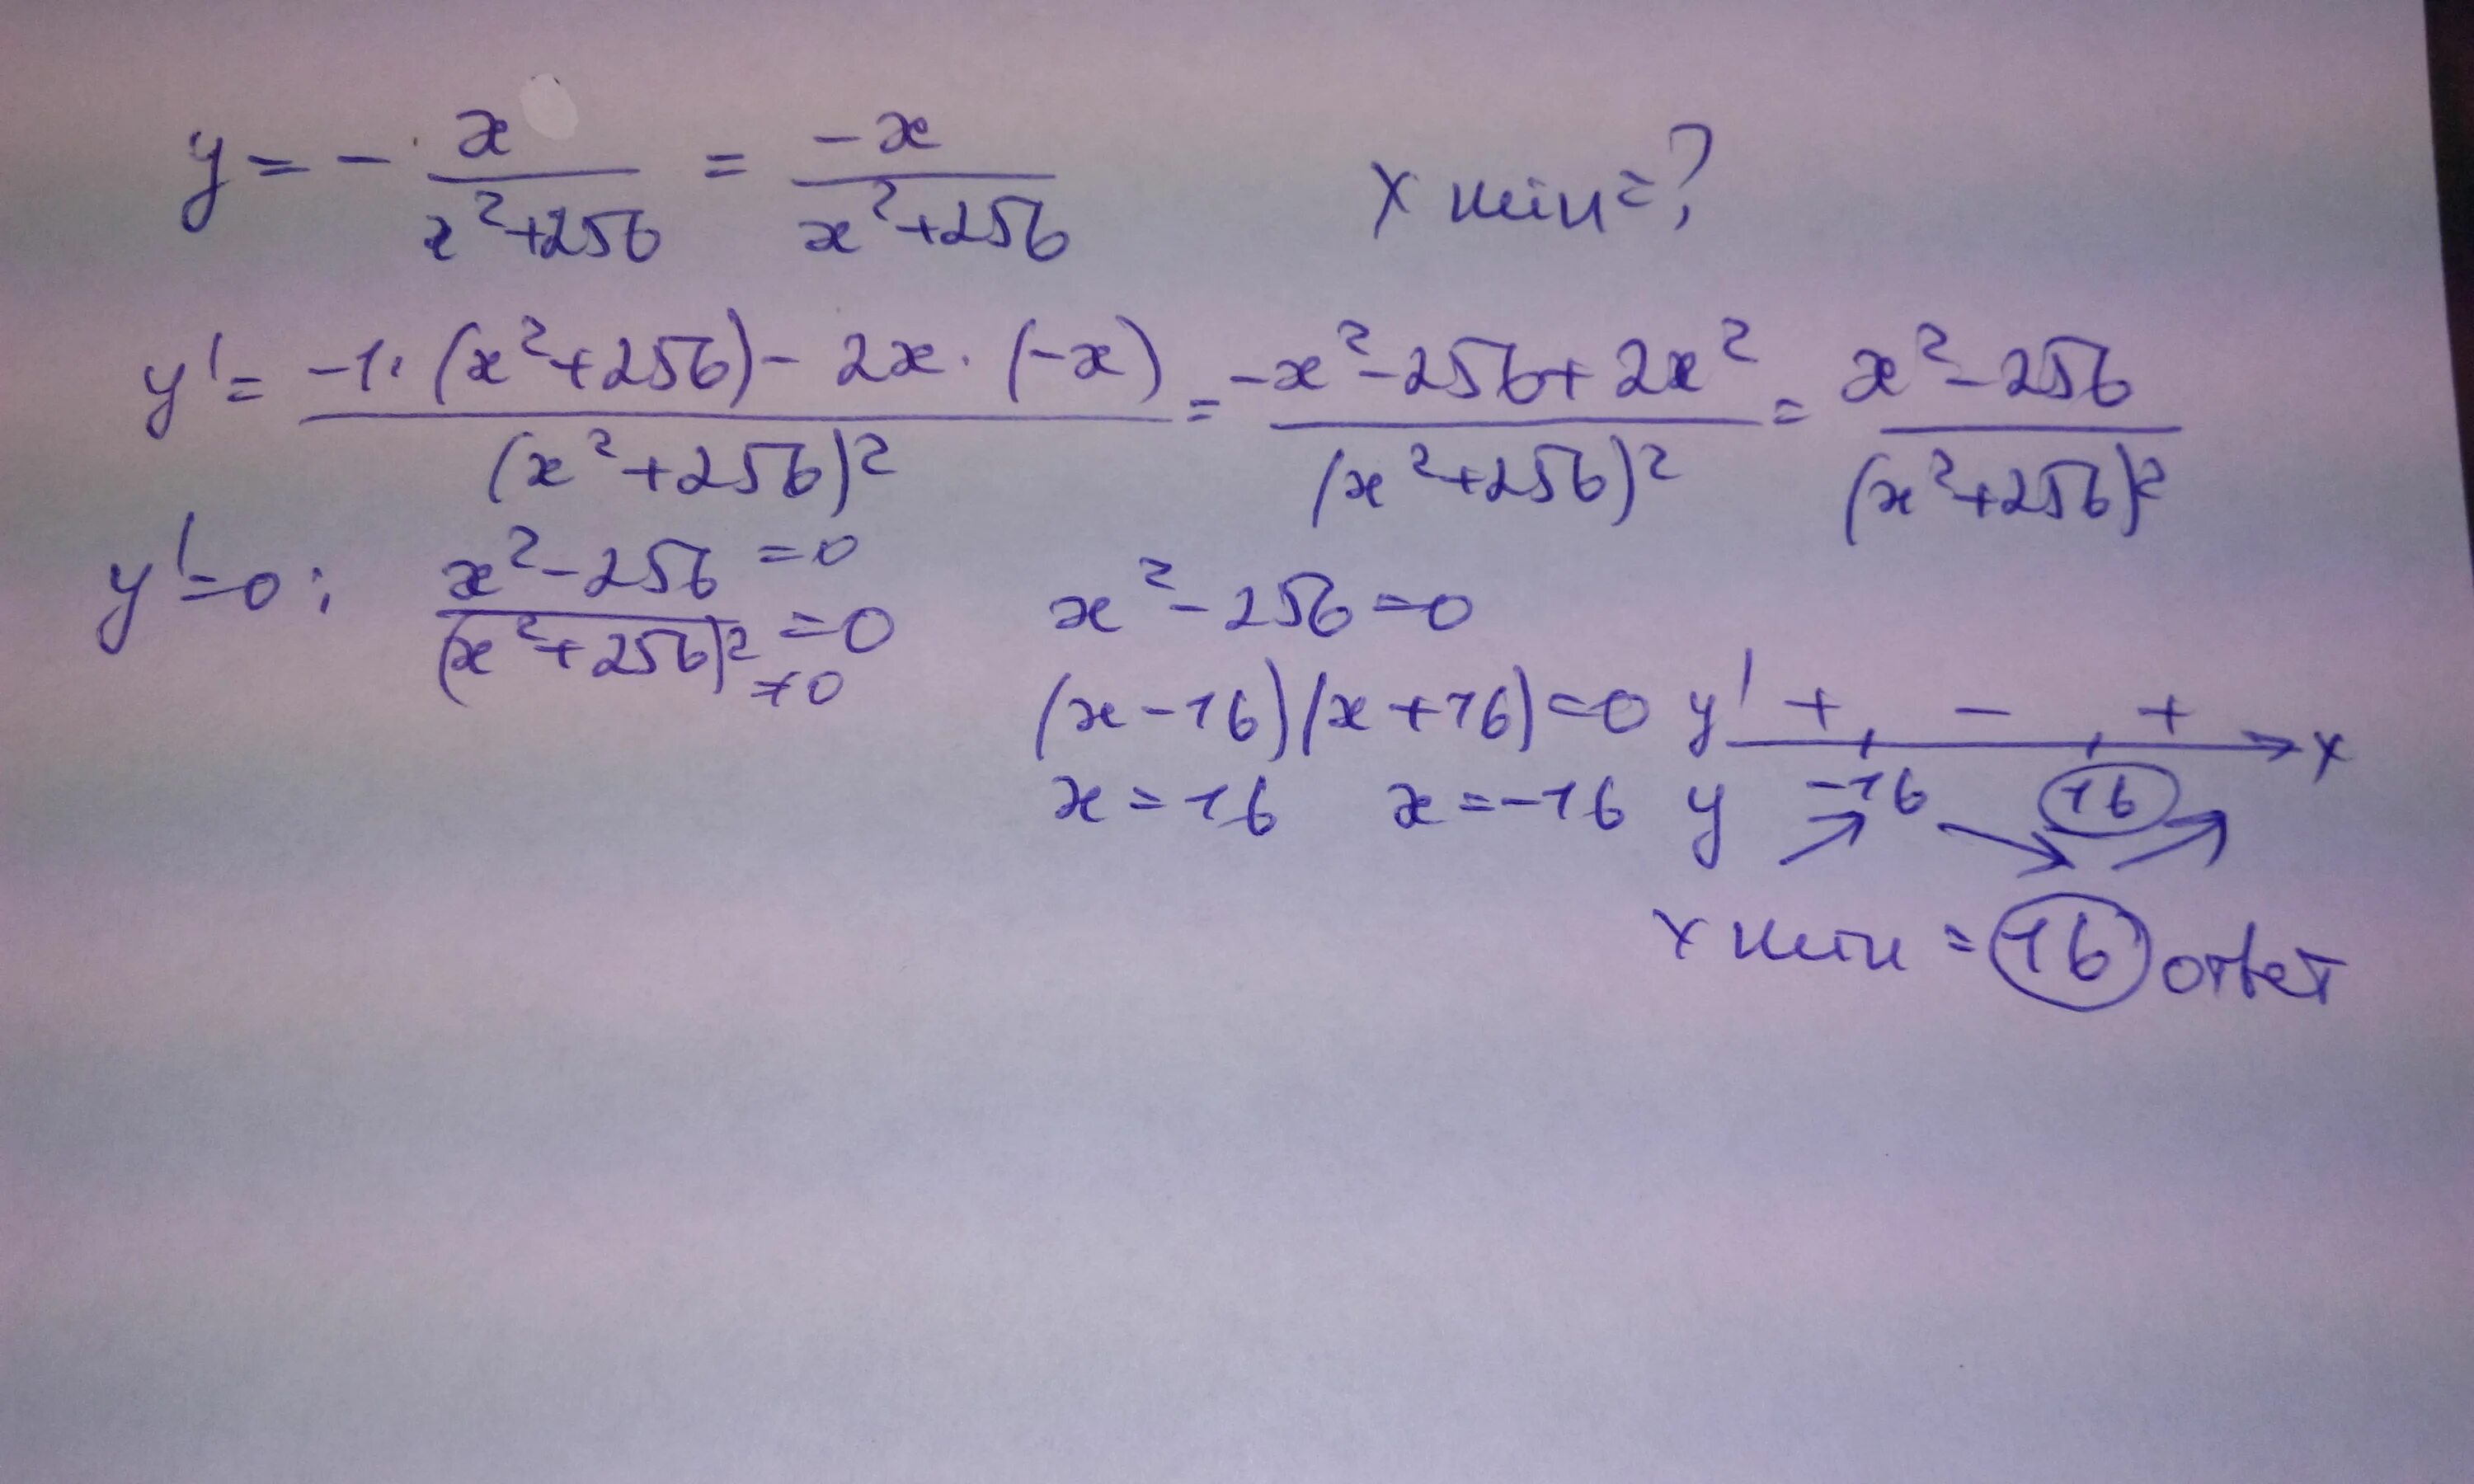 y = - x/(x²+256) = -x/(x²+256) x min = ?
y' = (-1·(x²+256) - 2x·(-x))/(x²+256)² = (-x²-256+2x²)/(x²+256)² = (x²-256)/(x²+256)²
y'=0: (x²-256)/(x²+256)² = 0 =0 ≠0 x²-256=0
(x-16)(x+16)=0 y' + - + x
x=16 x=-16 y -16 16
x min = 16 ответ